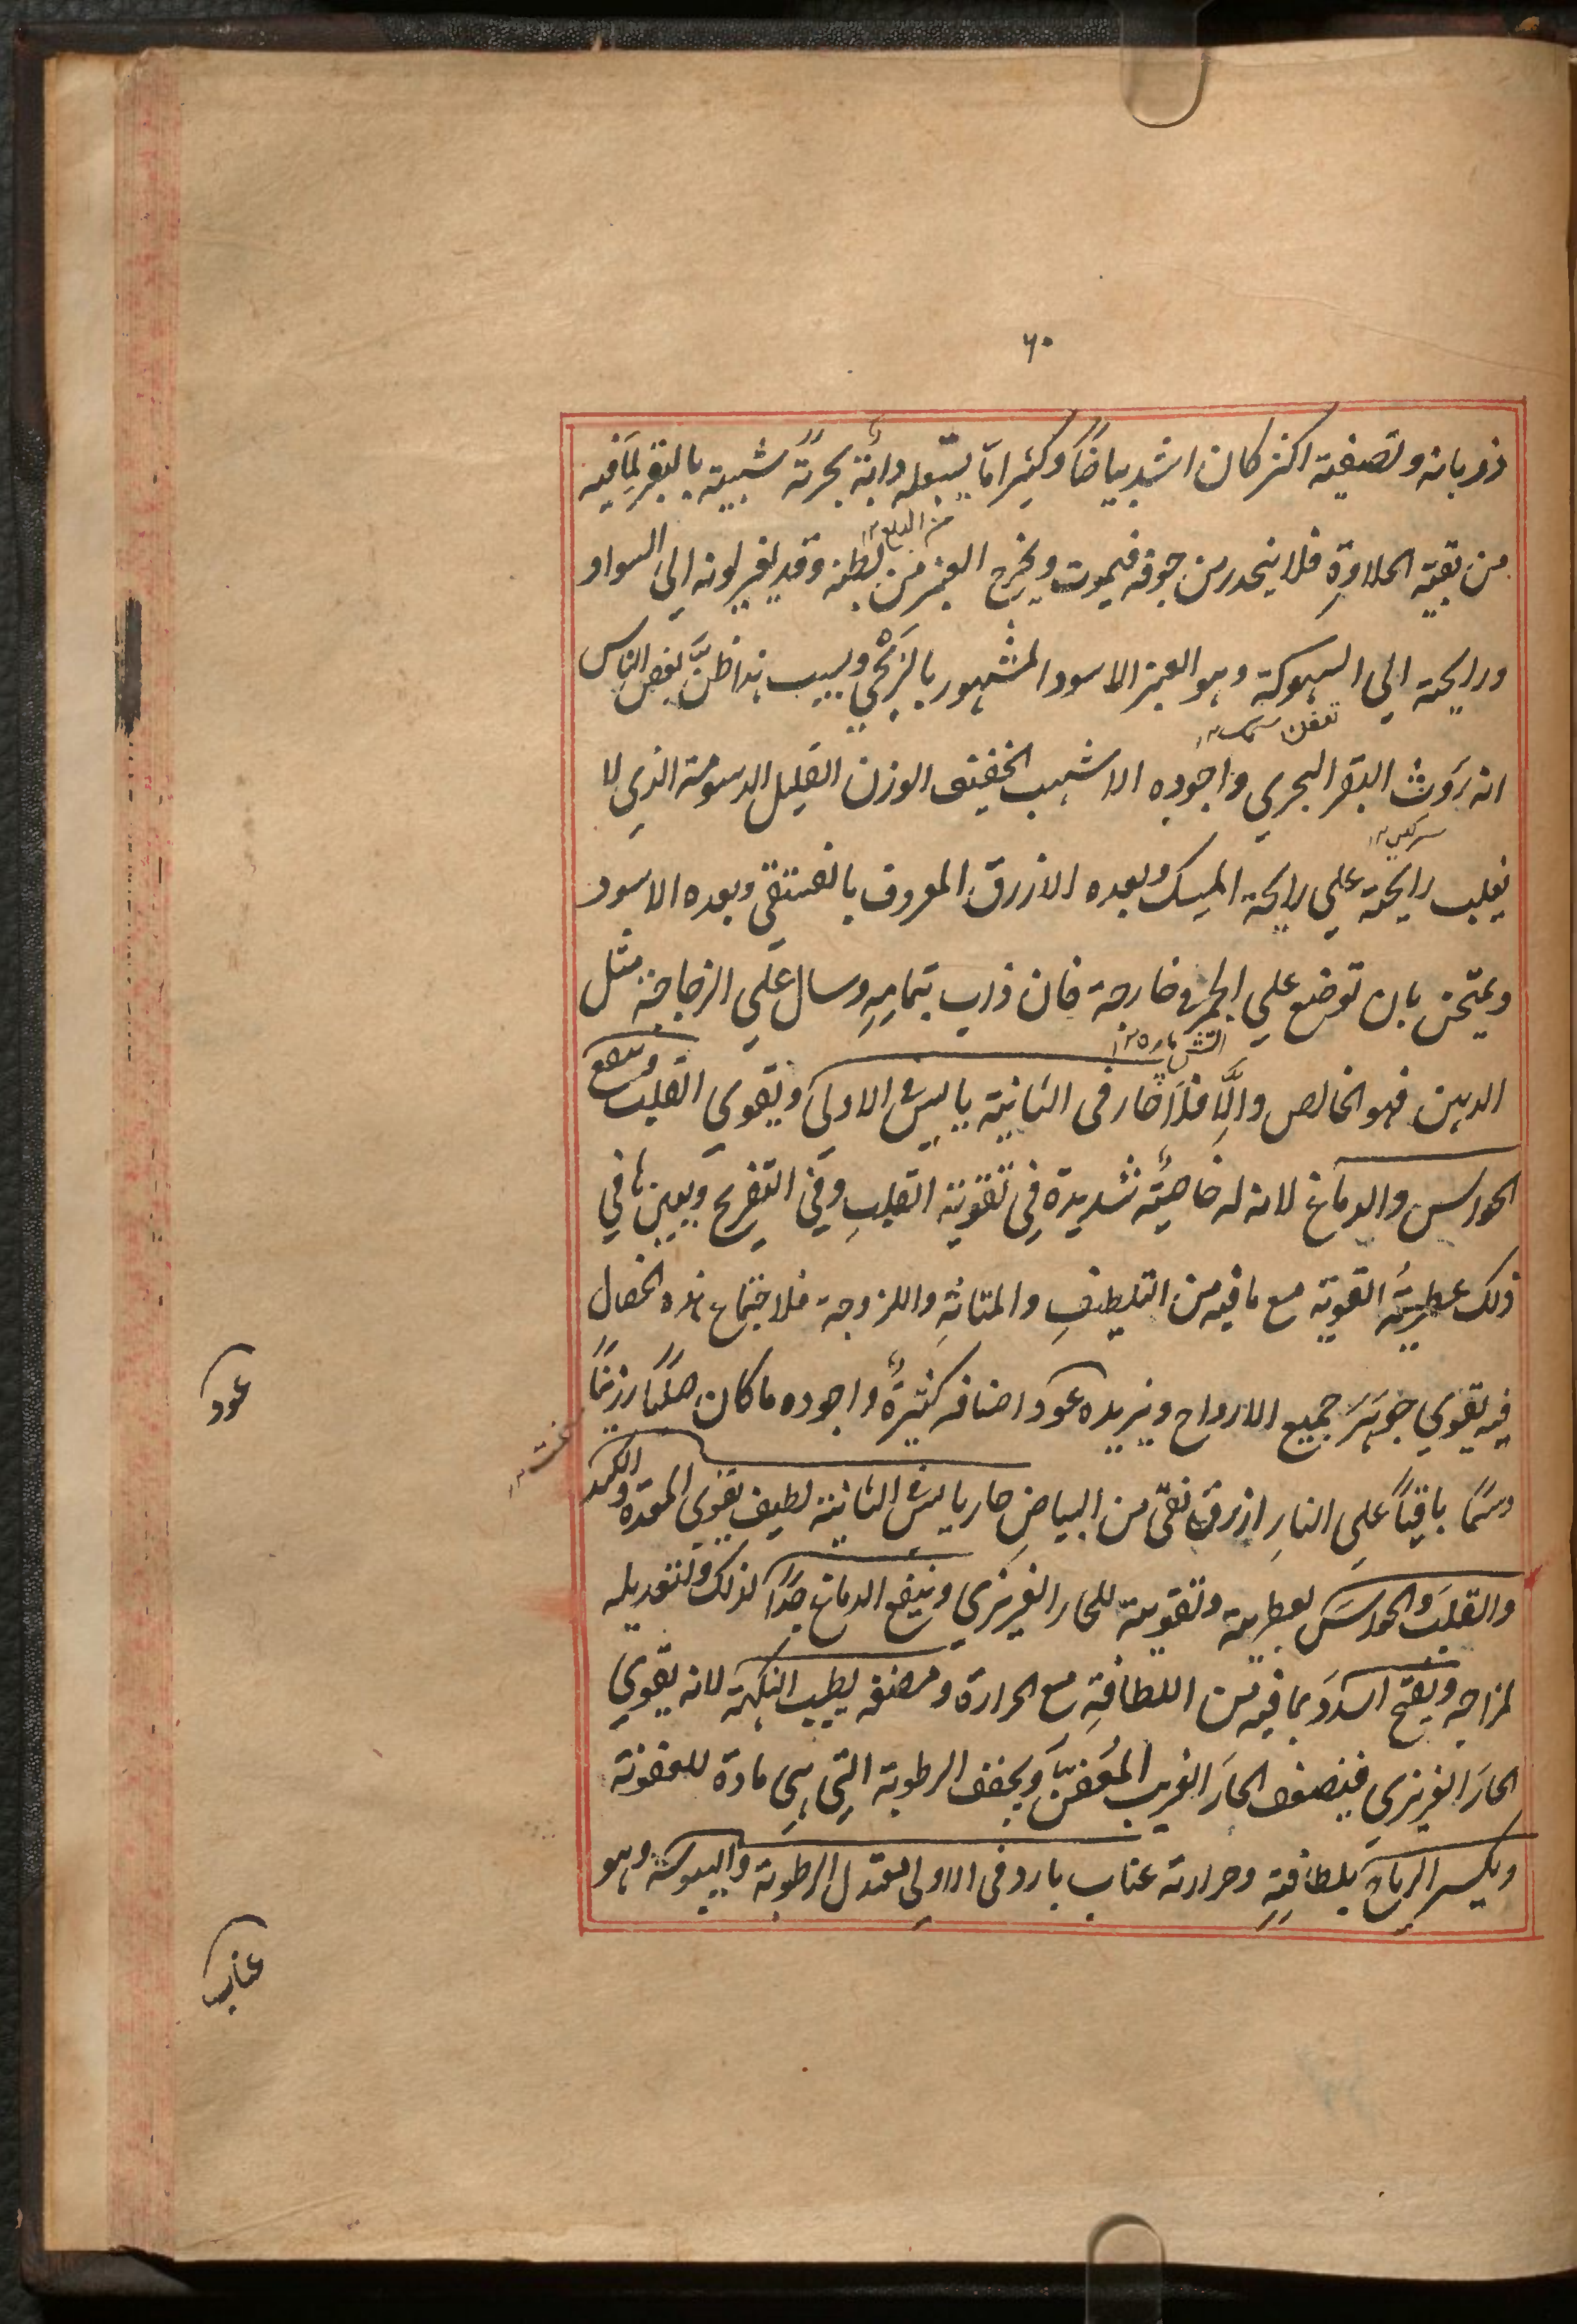 ٦٠
ذوبانه وتصفيته اكثر كان اشد بياضاً وكثيرا ما يبتلعه دابة بحرية شبيهة بالبقر لما فيه
من بقية الحلاوة فلا ينحدر من جوفه فيموت ويخرج العنبر من بطنه وقد تغير لونه الى السواد
ورايحته الي السهوكة وهو العنبر الاسود المشهور وبسبب هذا ظن بعض الناس
انه روث البقر البحري واجوده الاشهب الخفيف الوزن القليل الدسومة الذي لا
يغلب رايحته علي رايحة المسك وبعده الازرق المعروف بالفستقي وبعده الاسود
ويمتحن بان توضع علي الجمر في خارجه فان ذاب بتمامه وسال علي الزجاجة مثل
الدهن فهو الخالص والا فلا حار فى الثانية يابس في الاولى ويقوي القلب وينفع
الحواس والدماغ لانه له خاصية شديدة في تقوية القلب وفي التفريح ويعينها في
ذلك عطريته القوية مع ما فيه من التلطيف والمتانة واللزوجة فلاجتماع هذه الخصال
فيه يقوي جوهر جميع الارواح ويزيده عود اصنافه كثيرة واجوده ما كان صلبا رزينا
دسما باقياً علي النار ازرق نقى من البياض حار يابس في الثانية لطيف يقوي المعدة والكبد
والقلب والحواس لعطريته وتقويته للحار الغريزي وينفع الدماغ جدا لذلك ولتعديله
لمزاجه ويفتح السدد بما فيه من اللطافة مع الحرارة ومضغه يطيب النكهة لانه يقوي
الحار الغريزي فيضعف الحار الغريب المعفن ويجفف الرطوبة التي هي مادة للعفونة
ويكسر الرياح بلطافته وحرارته عناب بارد فى الاولى معتدل الرطوبة واليبوسة وهو
عود
عناب